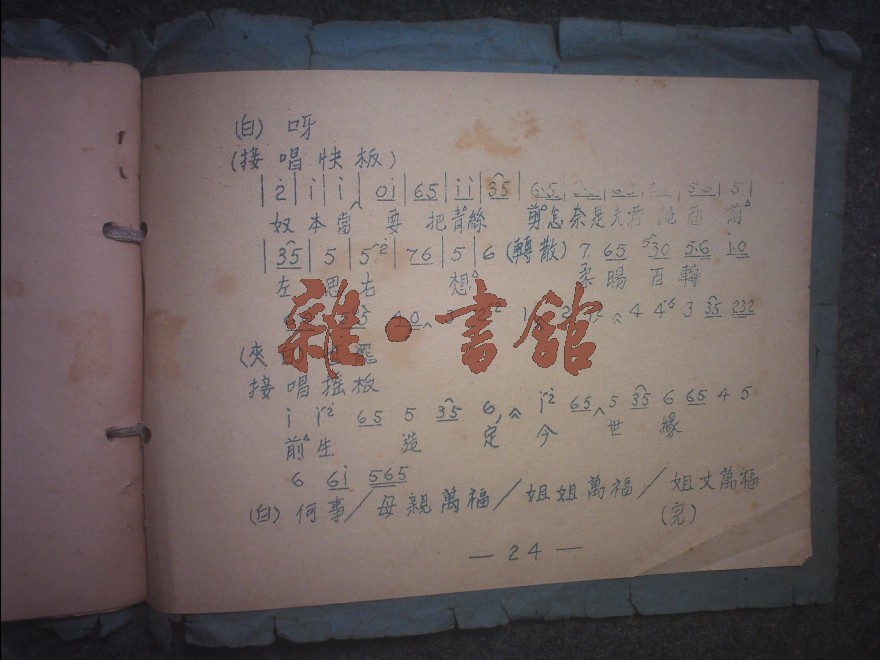 (白) 呀
(接唱快板)
| 2̇ | i̇ | i̇ | 0i̇ | 65 | i̇i̇ | 35 | 6·5 | 50 | 5 |
奴本當 要 把青絲 剪怎奈是夫君 面前
| 35 | 5 | 5 2̇ | 76 | 5 | 6 (轉散) 7 65 30 5·6 i̇·0
左思右 想 柔腸百轉
4 4 6 3 35 232
(夾白
接唱搖板
i̇ i̇ 2̇ 65 5 35 6 i̇ 2̇ 65 5 35 6 65 4 5
前生 造 定 今 世 緣
6 6i̇ 565
(白) 何事/母親萬福/姐姐萬福/姐丈萬福
(完)
— 24 —
雜·書館